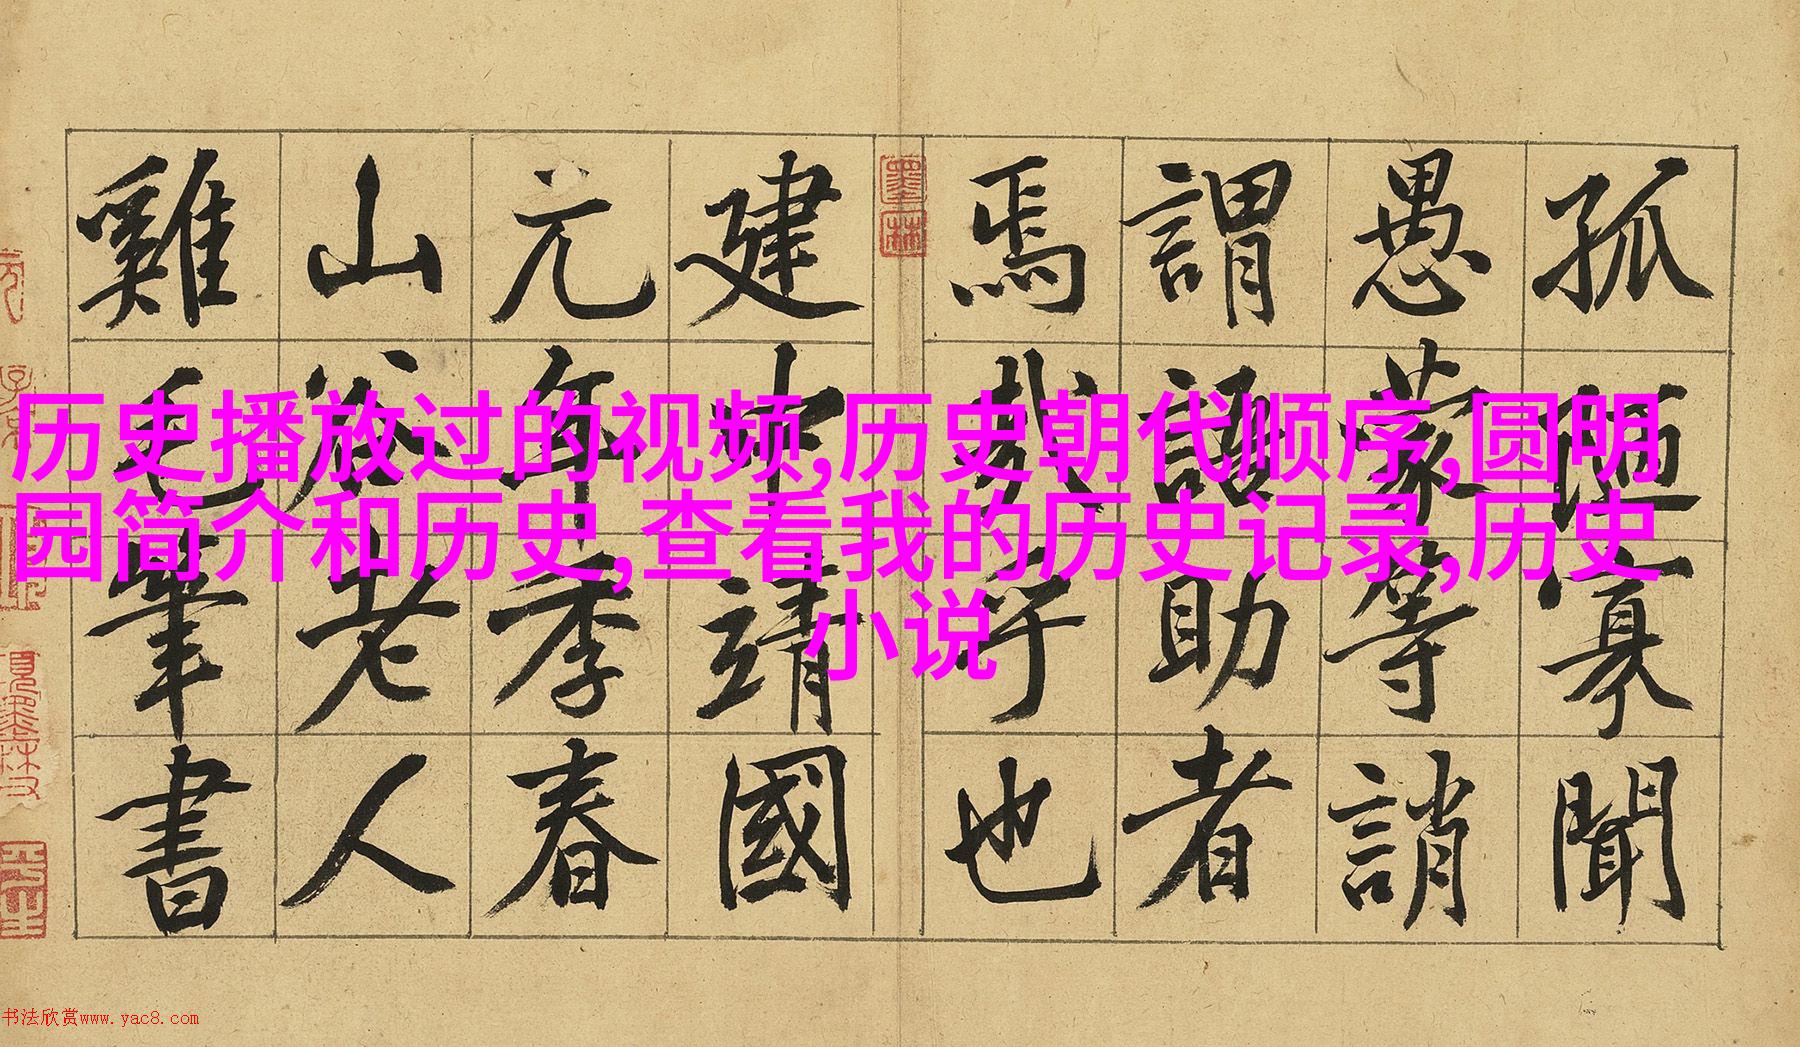 孤陋寡聞
愚蒙等誚
謂語助者
焉哉乎也
建中靖國
元年季春
山谷老人
雞毛筆書
墨林
历史播放过的视频,历史朝代顺序,圆明
园简介和历史,查看我的历史记录,历史
小说
书法欣赏www.yac8.com